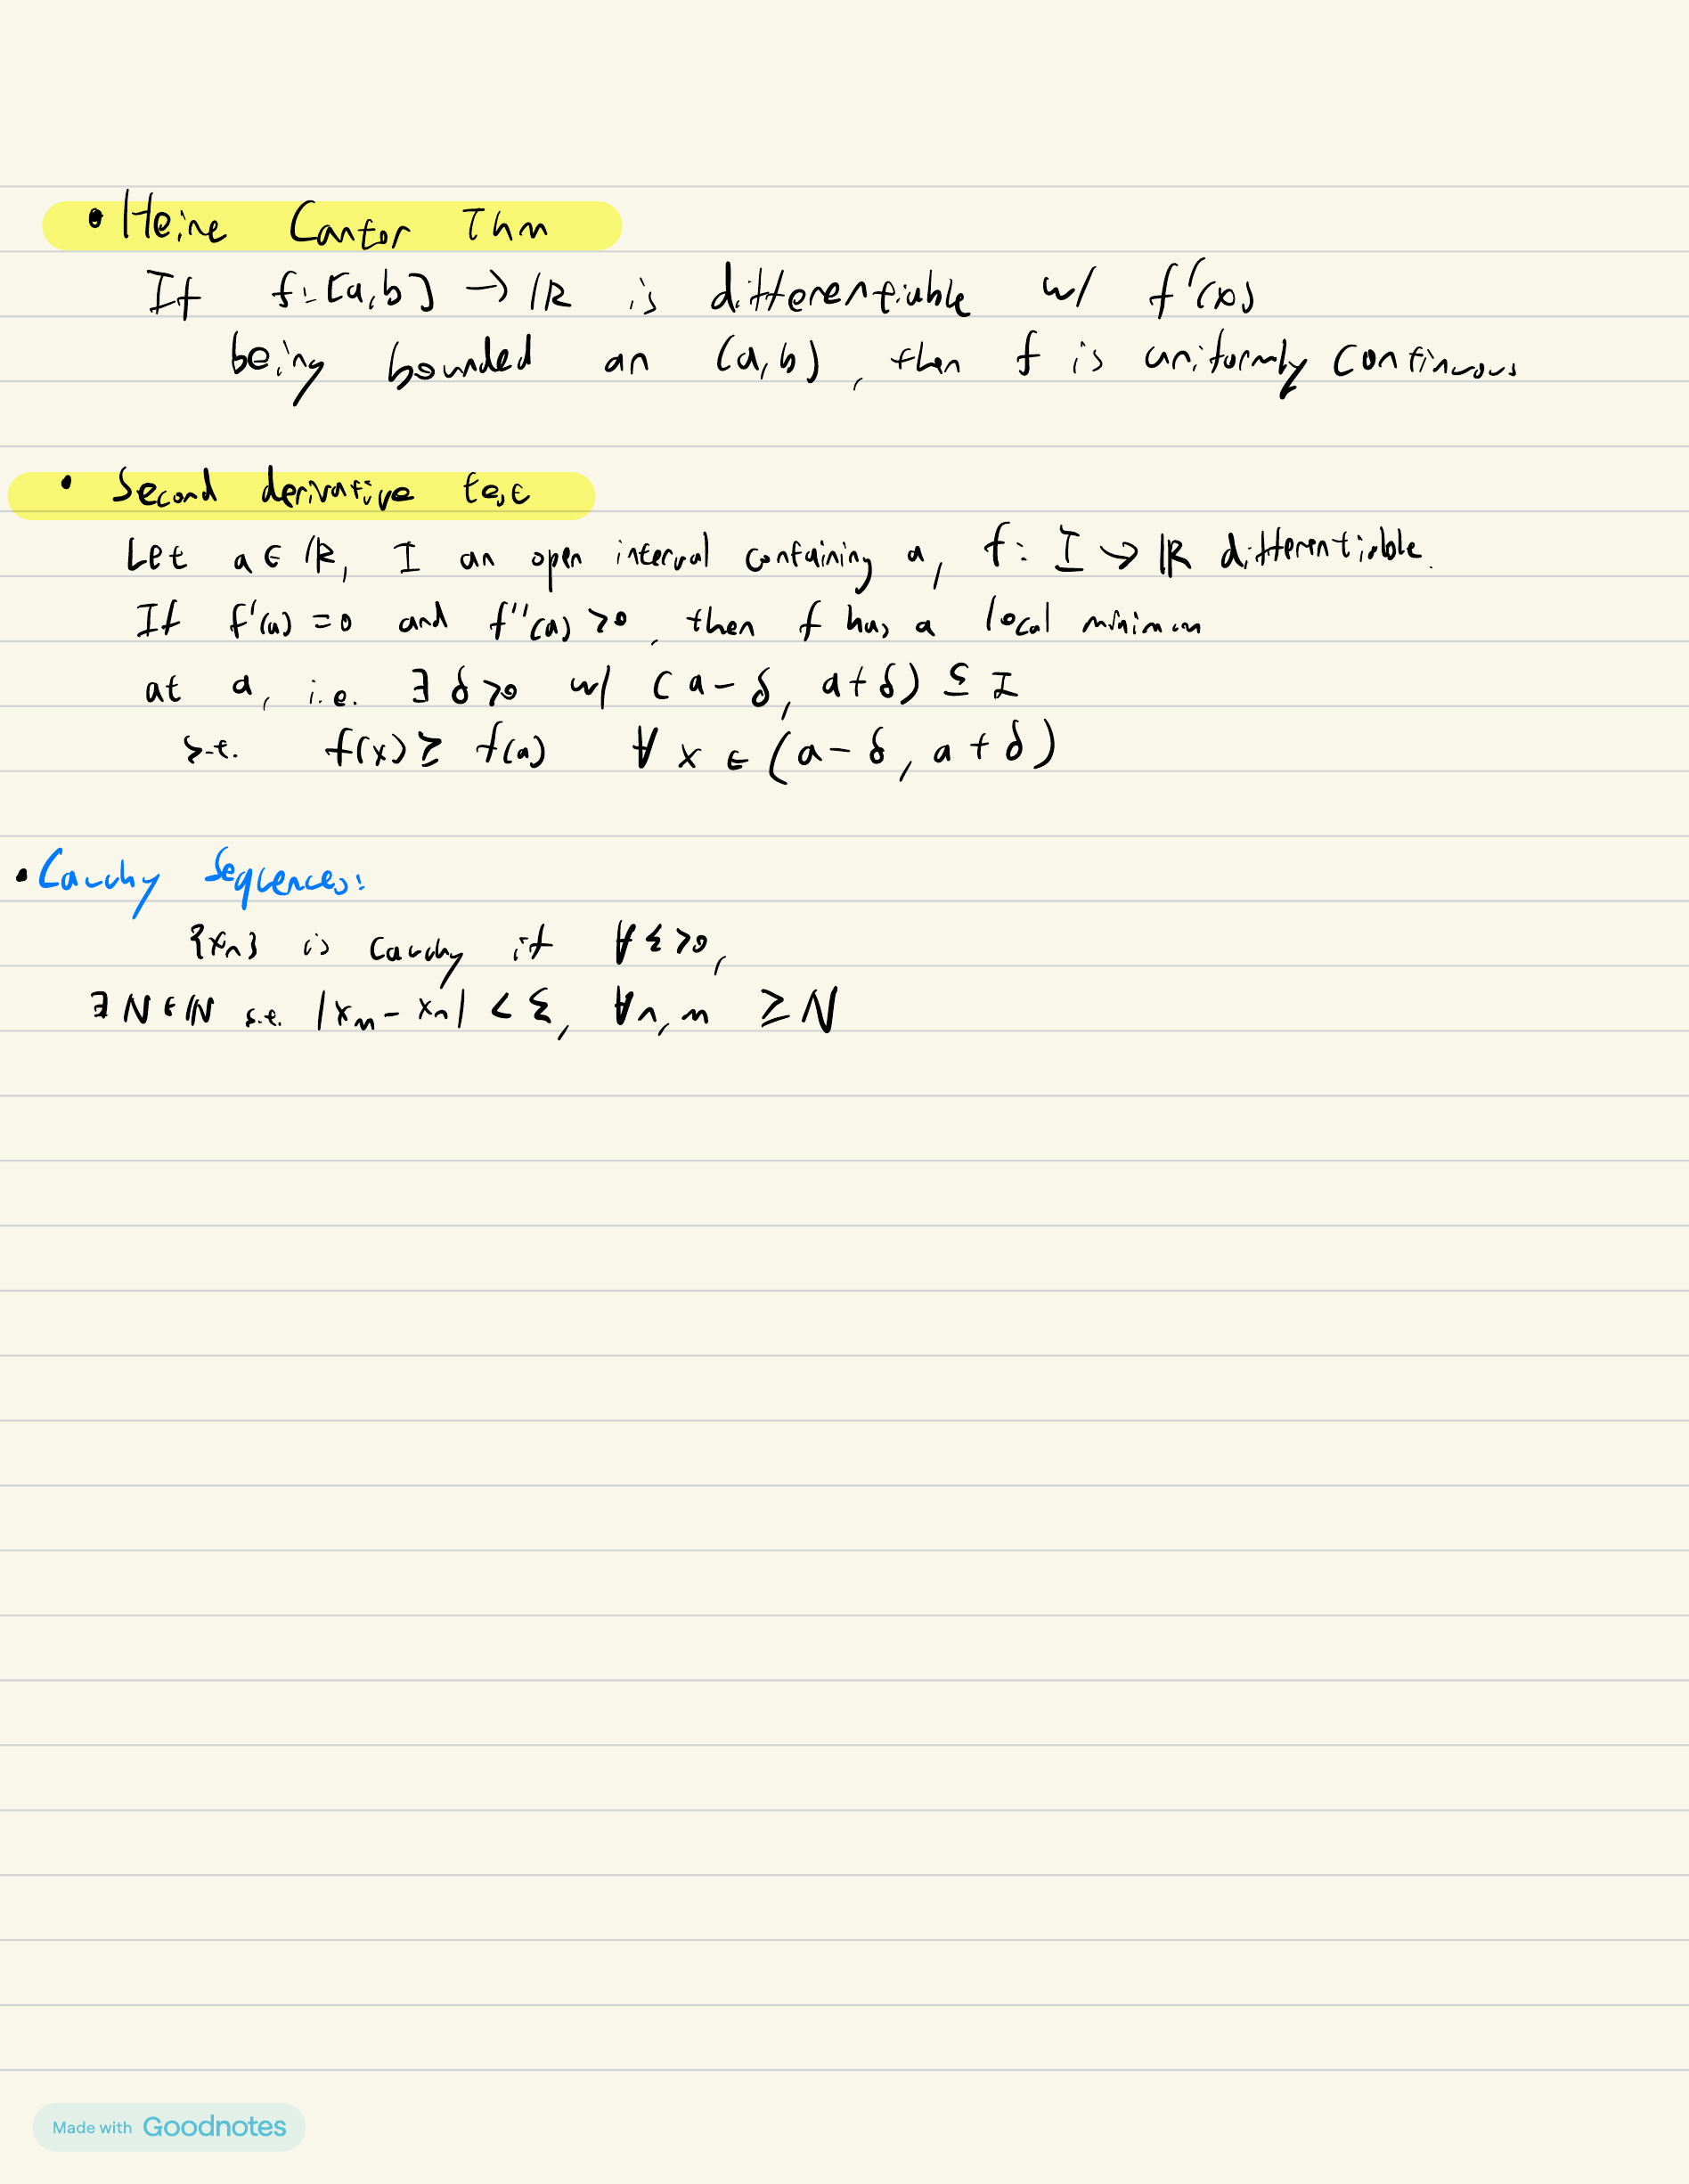 • Heine Cantor Thm
If f: [a,b] → ℝ is differentiable w/ f'(x)
being bounded on (a,b), then f is uniformly continuous
• Second derivative test
Let a ∈ ℝ, I an open interval containing a, f: I → ℝ differentiable.
If f'(a) = 0 and f''(a) > 0, then f has a local minimum
at a, i.e. ∃ δ > 0 w/ (a - δ, a + δ) ⊆ I
s.t. f(x) ≥ f(a) ∀ x ∈ (a - δ, a + δ)
• Cauchy Sequences:
{xₙ} is cauchy if ∀ ε > 0,
∃ N ∈ ℕ s.t. |xₘ - xₙ| < ε, ∀ n, m ≥ N
Made with Goodnotes